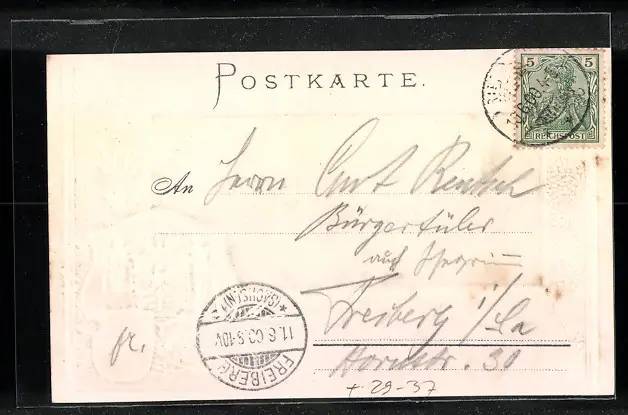 POSTKARTE.
5 5
REICHSPOST
An Herrn Curt
Bürgerschüler
auf
Freiberg i/Sa
Hornstr. 30
FREIBERG
(SACHSEN)
11.6.00.8-10V
fr.
+ 29-37